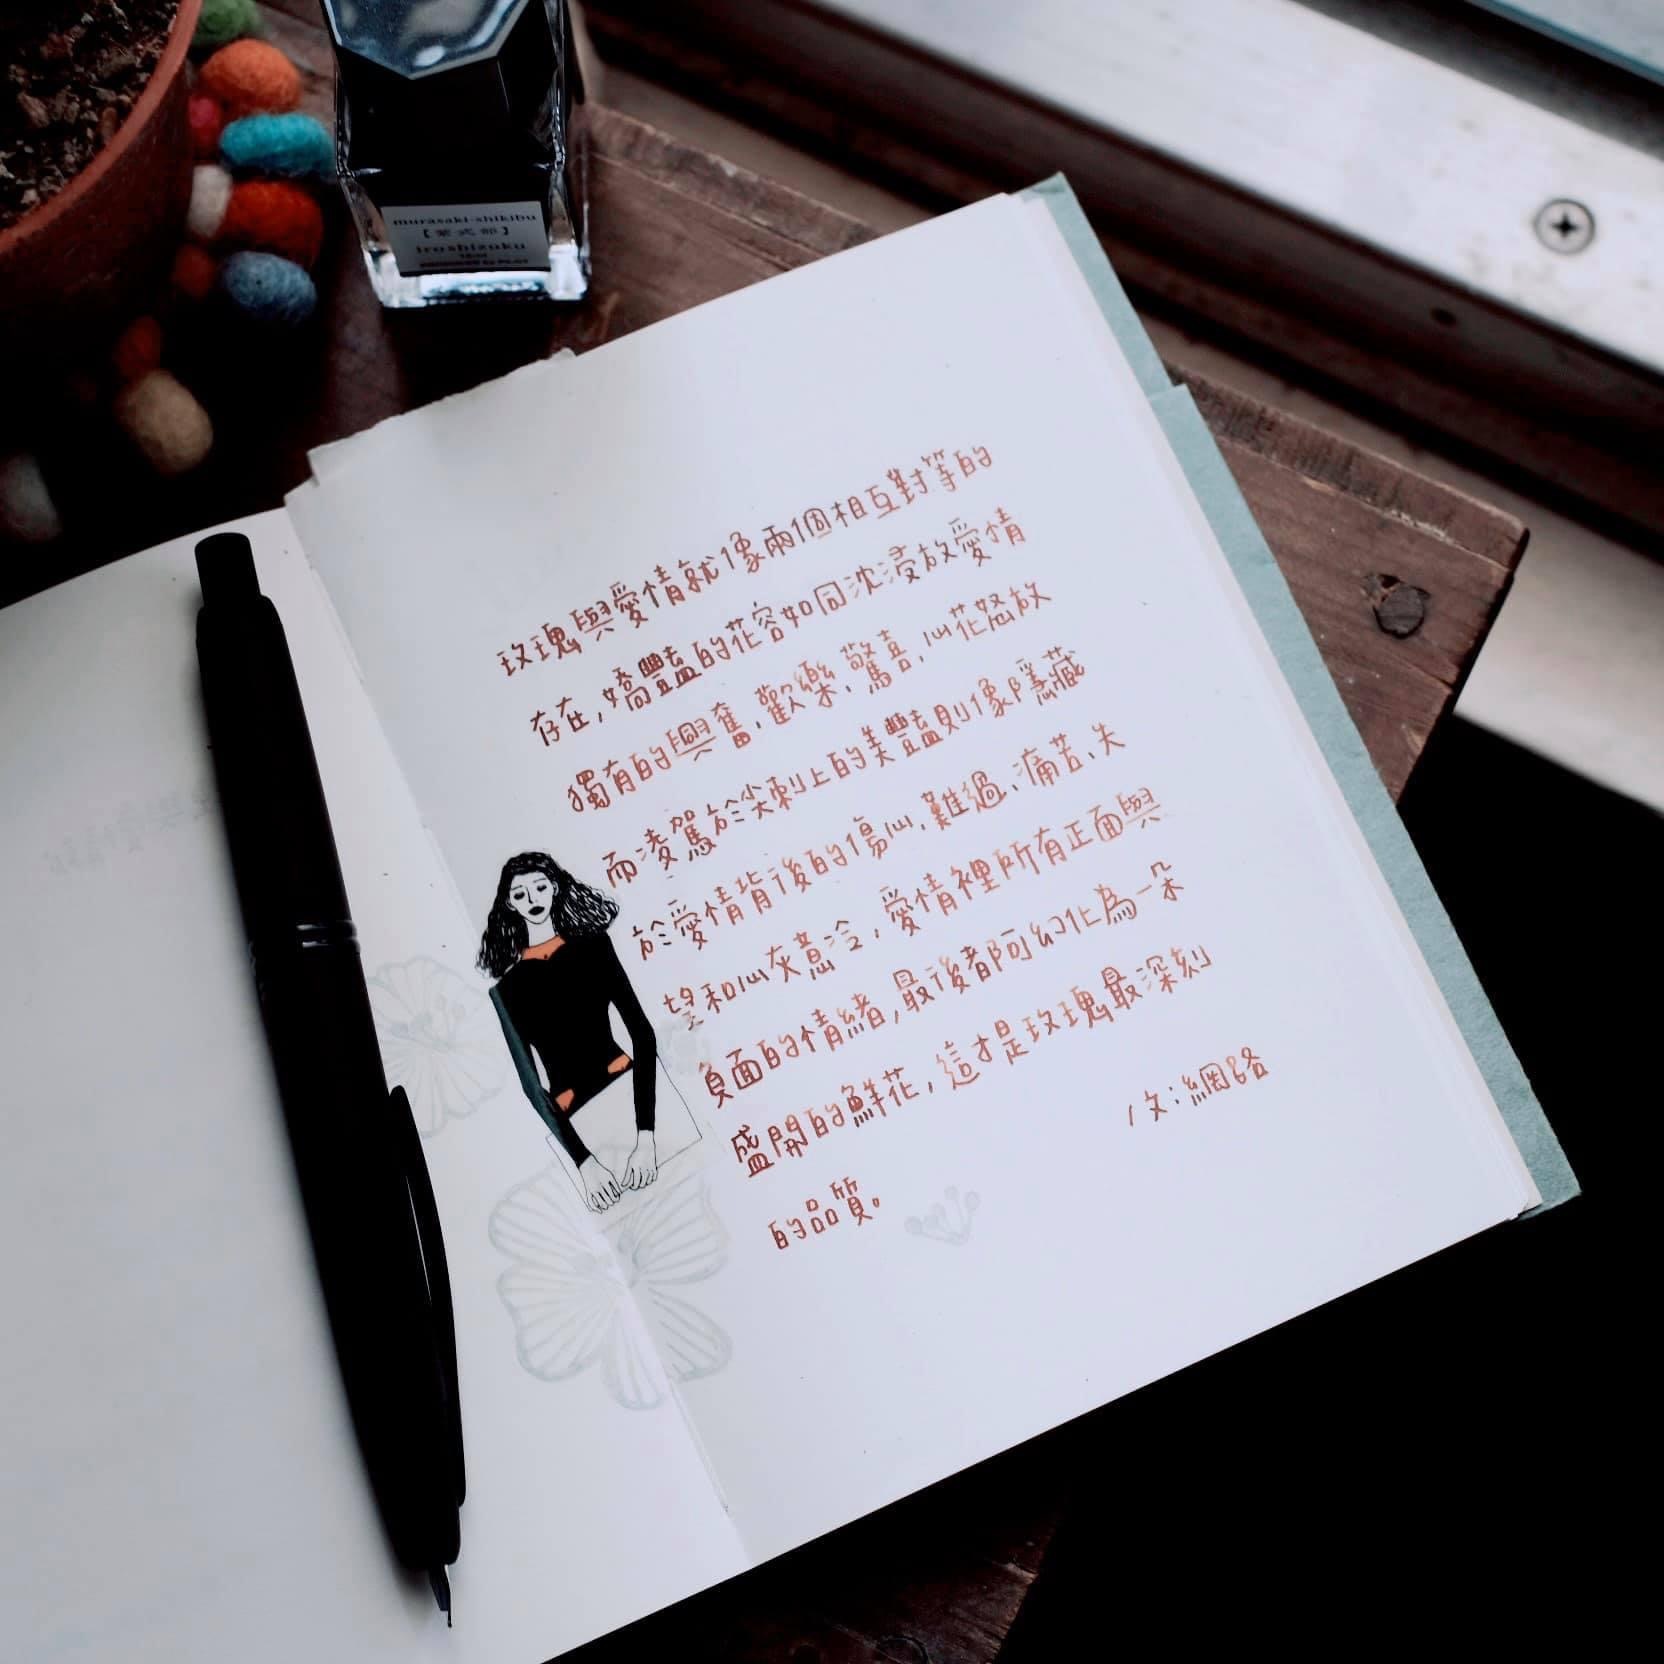 murasaki-shikibu
【紫式部】
iroshizuku
玫瑰與愛情就像兩個相互對等的
存在,嬌豔的花容如同沈浸放愛情
獨有的興奮、歡樂、驚喜、心花怒放
而凌駕於尖刺上的美豔則像隱藏
於愛情背後的傷心、難過、痛苦、失
望和心灰意冷,愛情裡所有正面與
負面的情緒,最後都將幻化為一朵
盛開的鮮花,這才是玫瑰最深刻
的品質。
/文:網路